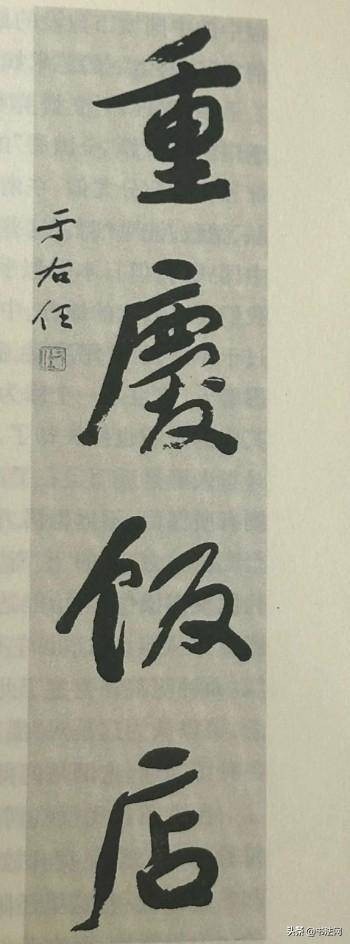 重慶飯店
于右任
头条 @书法网